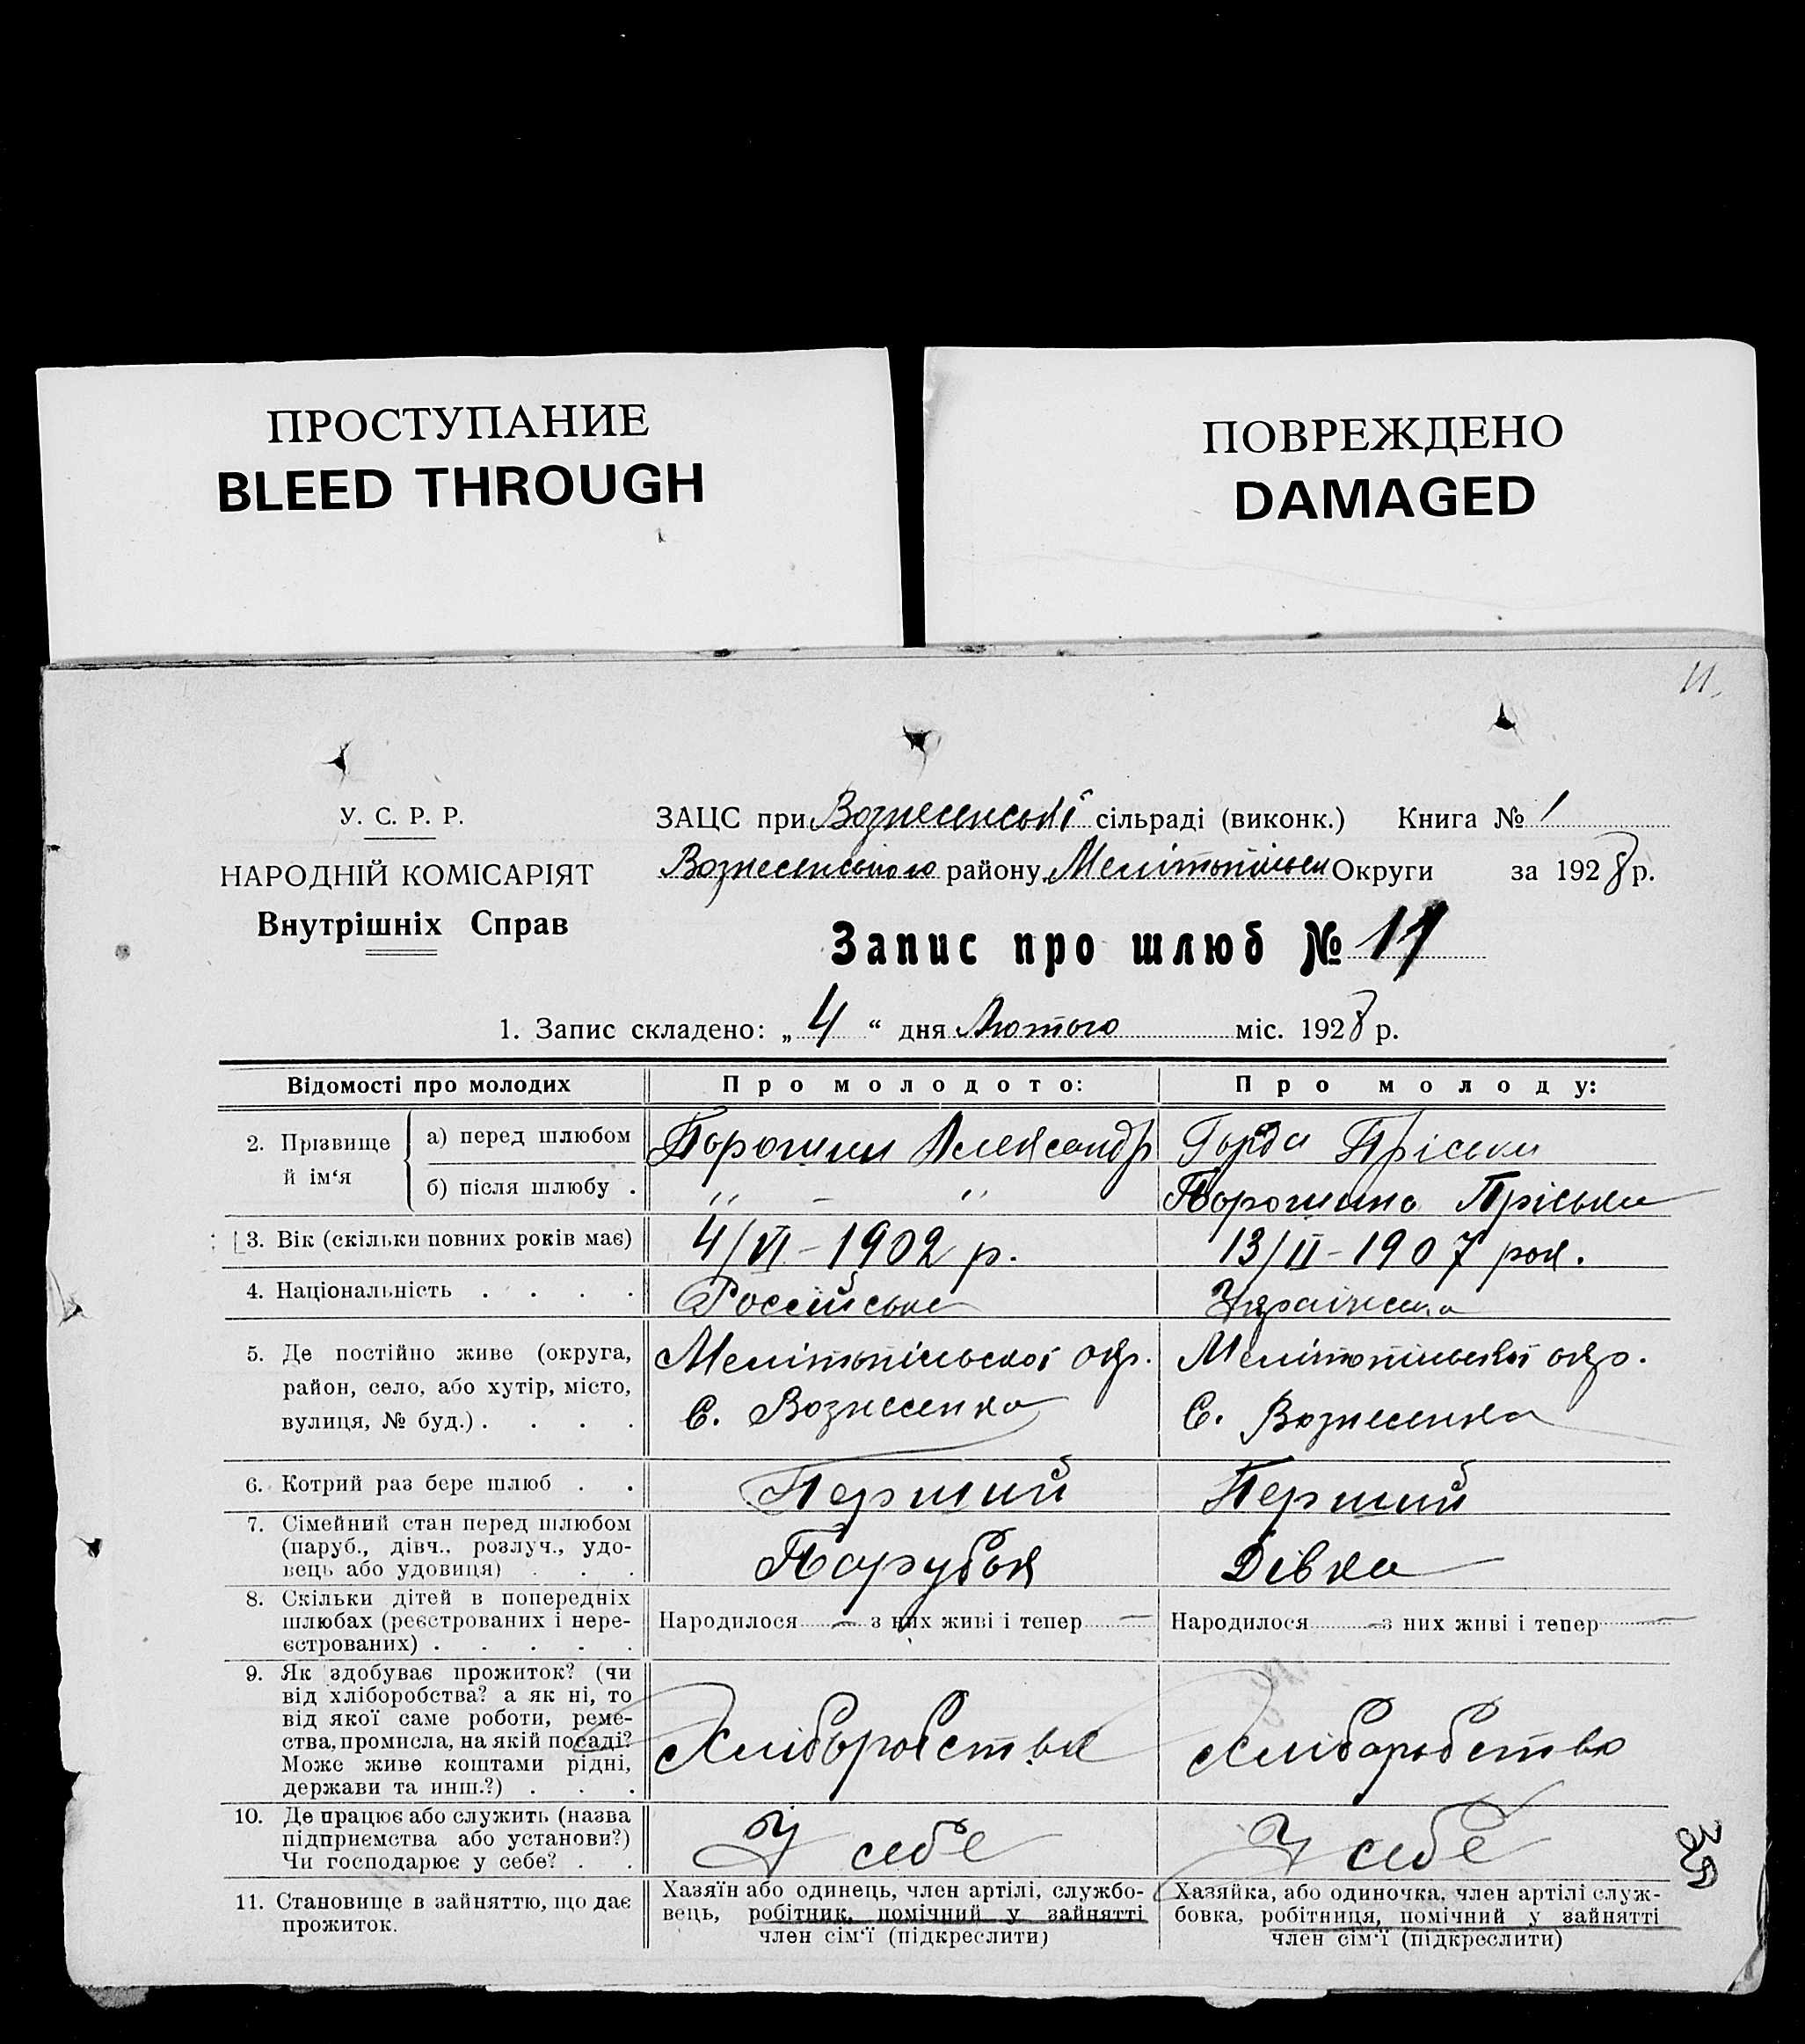 ПРОСТУПАНИЕ
BLEED THROUGH
ПОВРЕЖДЕНО
DAMAGED
11.
У. С. Р. Р.
НАРОДНІЙ КОМІСАРІЯТ
Внутрішніх Справ
ЗАЦС при Вознесенські сільраді (виконк.) Книга № 1
Вознесенського району Мелітопільськ Округи за 1928 р.
Запис про шлюб № 11
1. Запис складено: „ 4 “ дня Лютого міс. 1928 р.
Відомості про молодих
Про молодого:
Про молоду:
2. Прізвище й ім‘я
а) перед шлюбом
Порошин Александр
Горда Пріська
б) після шлюбу .
„ – „
Порошина Пріська
3. Вік (скільки повних років має)
4/VI – 1902 р.
13/II – 1907 рок.
4. Національність . . . .
Російське
Українська
5. Де постійно живе (округа,
район, село, або хутір, місто,
вулиця, № буд.) . . . .
Мелітопільської окр.
С. Вознесенка
Мелітопільської окр.
С. Вознесенка
6. Котрий раз бере шлюб . .
Перший
Перший
7. Сімейний стан перед шлюбом
(паруб., дівч., розлуч., удо-
вець або удовиця) . . .
Парубок
Дівка
8. Скільки дітей в попередніх
шлюбах (реєстрованих і нере-
єстрованих) . . . . .
Народилося — з них живі і тепер —
Народилося — з них живі і тепер —
9. Як здобуває прожиток? (чи
від хліборобства? а як ні, то
від якої саме роботи, реме-
ства, промисла, на якій посаді?
Може живе коштами рідні,
держави та инш.?) . . .
Хліборобство
Хліборобство
10. Де працює або служить (назва
підприємства або установи?)
Чи господарює у себе? . .
У себе
У себе
35
11. Становище в зайняттю, що дає
прожиток.
Хазяїн або одинець, член артілі, службо-
вець, робітник, помічний у зайнятті
член сім‘ї (підкреслити)
Хазяйка, або одиночка, член артілі служ-
бовка, робітниця, помічний у зайнятті
член сім‘ї (підкреслити)